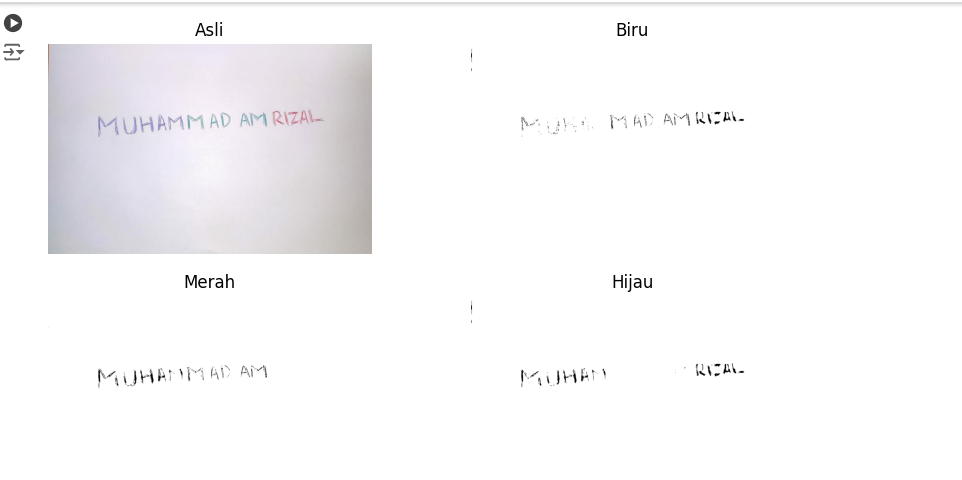 Asli
MUHAMMAD AMRIZAL
Biru
MUHA MAD AMRIZAL
Merah
MUHAMMAD AM
Hijau
MUHAM RIZAL